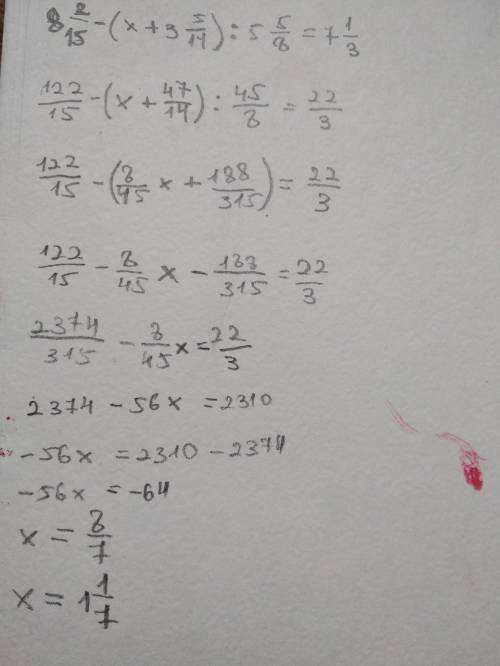 8 2/15 - (x + 3 5/14) : 5 5/8 = 7 1/3
122/15 - (x + 47/14) : 45/8 = 22/3
122/15 - (8/45 x + 188/315) = 22/3
122/15 - 8/45 x - 188/315 = 22/3
2374/315 - 8/45 x = 22/3
2374 - 56x = 2310
-56x = 2310 - 2374
-56x = -64
x = 8/7
x = 1 1/7